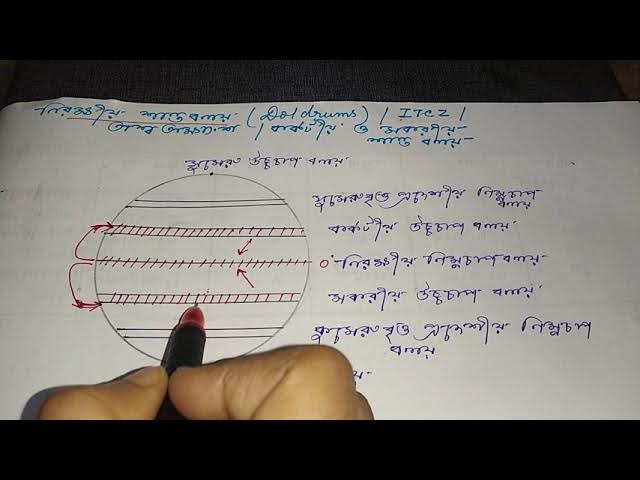 নিরক্ষীয় শান্তবলয় (Doldrums) | ITCZ |
অশ্ব অক্ষাংশ | কর্কটীয় ও মকরীয়
শান্ত বলয়
সুমেরু উচ্চচাপ বলয়
সুমেরুবৃত্ত প্রদেশীয় নিম্নচাপ
বলয়
কর্কটীয় উচ্চচাপ বলয়
0° নিরক্ষীয় নিম্নচাপ বলয়
মকরীয় উচ্চচাপ বলয়
কুমেরুবৃত্ত প্রদেশীয় নিম্নচাপ
বলয়